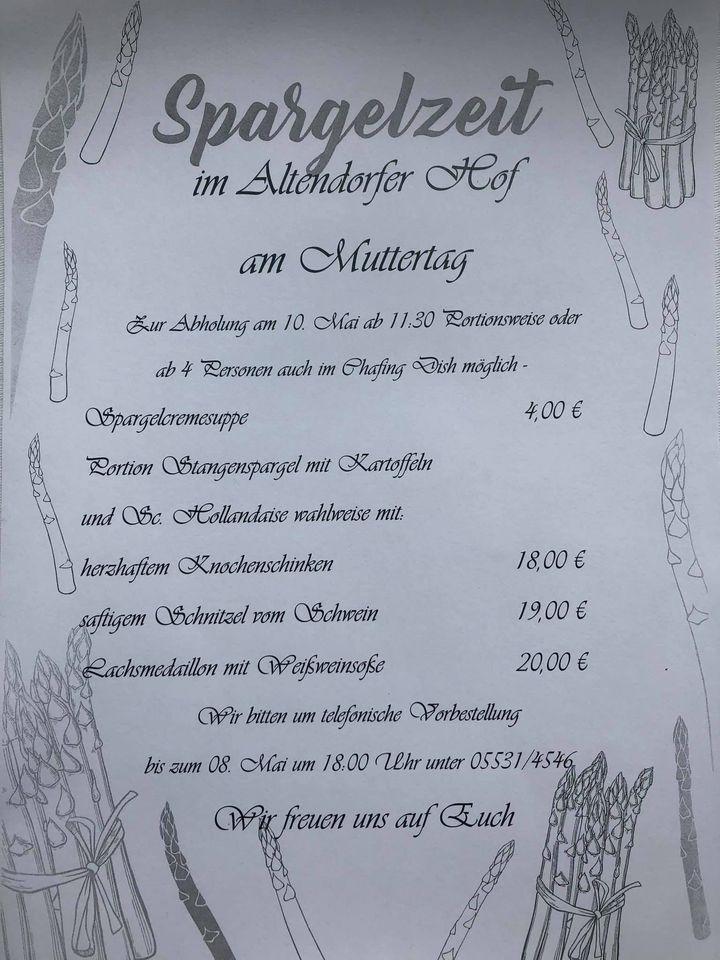 Spargelzeit
im Altendorfer Hof
am Muttertag
Zur Abholung am 10. Mai ab 11:30 Portionsweise oder
ab 4 Personen auch im Chafing Dish möglich -
Spargelcremesuppe 4,00 €
Portion Stangenspargel mit Kartoffeln
und Sc. Hollandaise wahlweise mit:
herzhaftem Knochenschinken 18,00 €
saftigem Schnitzel vom Schwein 19,00 €
Lachsmedaillon mit Weißweinsoße 20,00 €
Wir bitten um telefonische Vorbestellung
bis zum 08. Mai um 18:00 Uhr unter 05531/4546
Wir freuen uns auf Euch